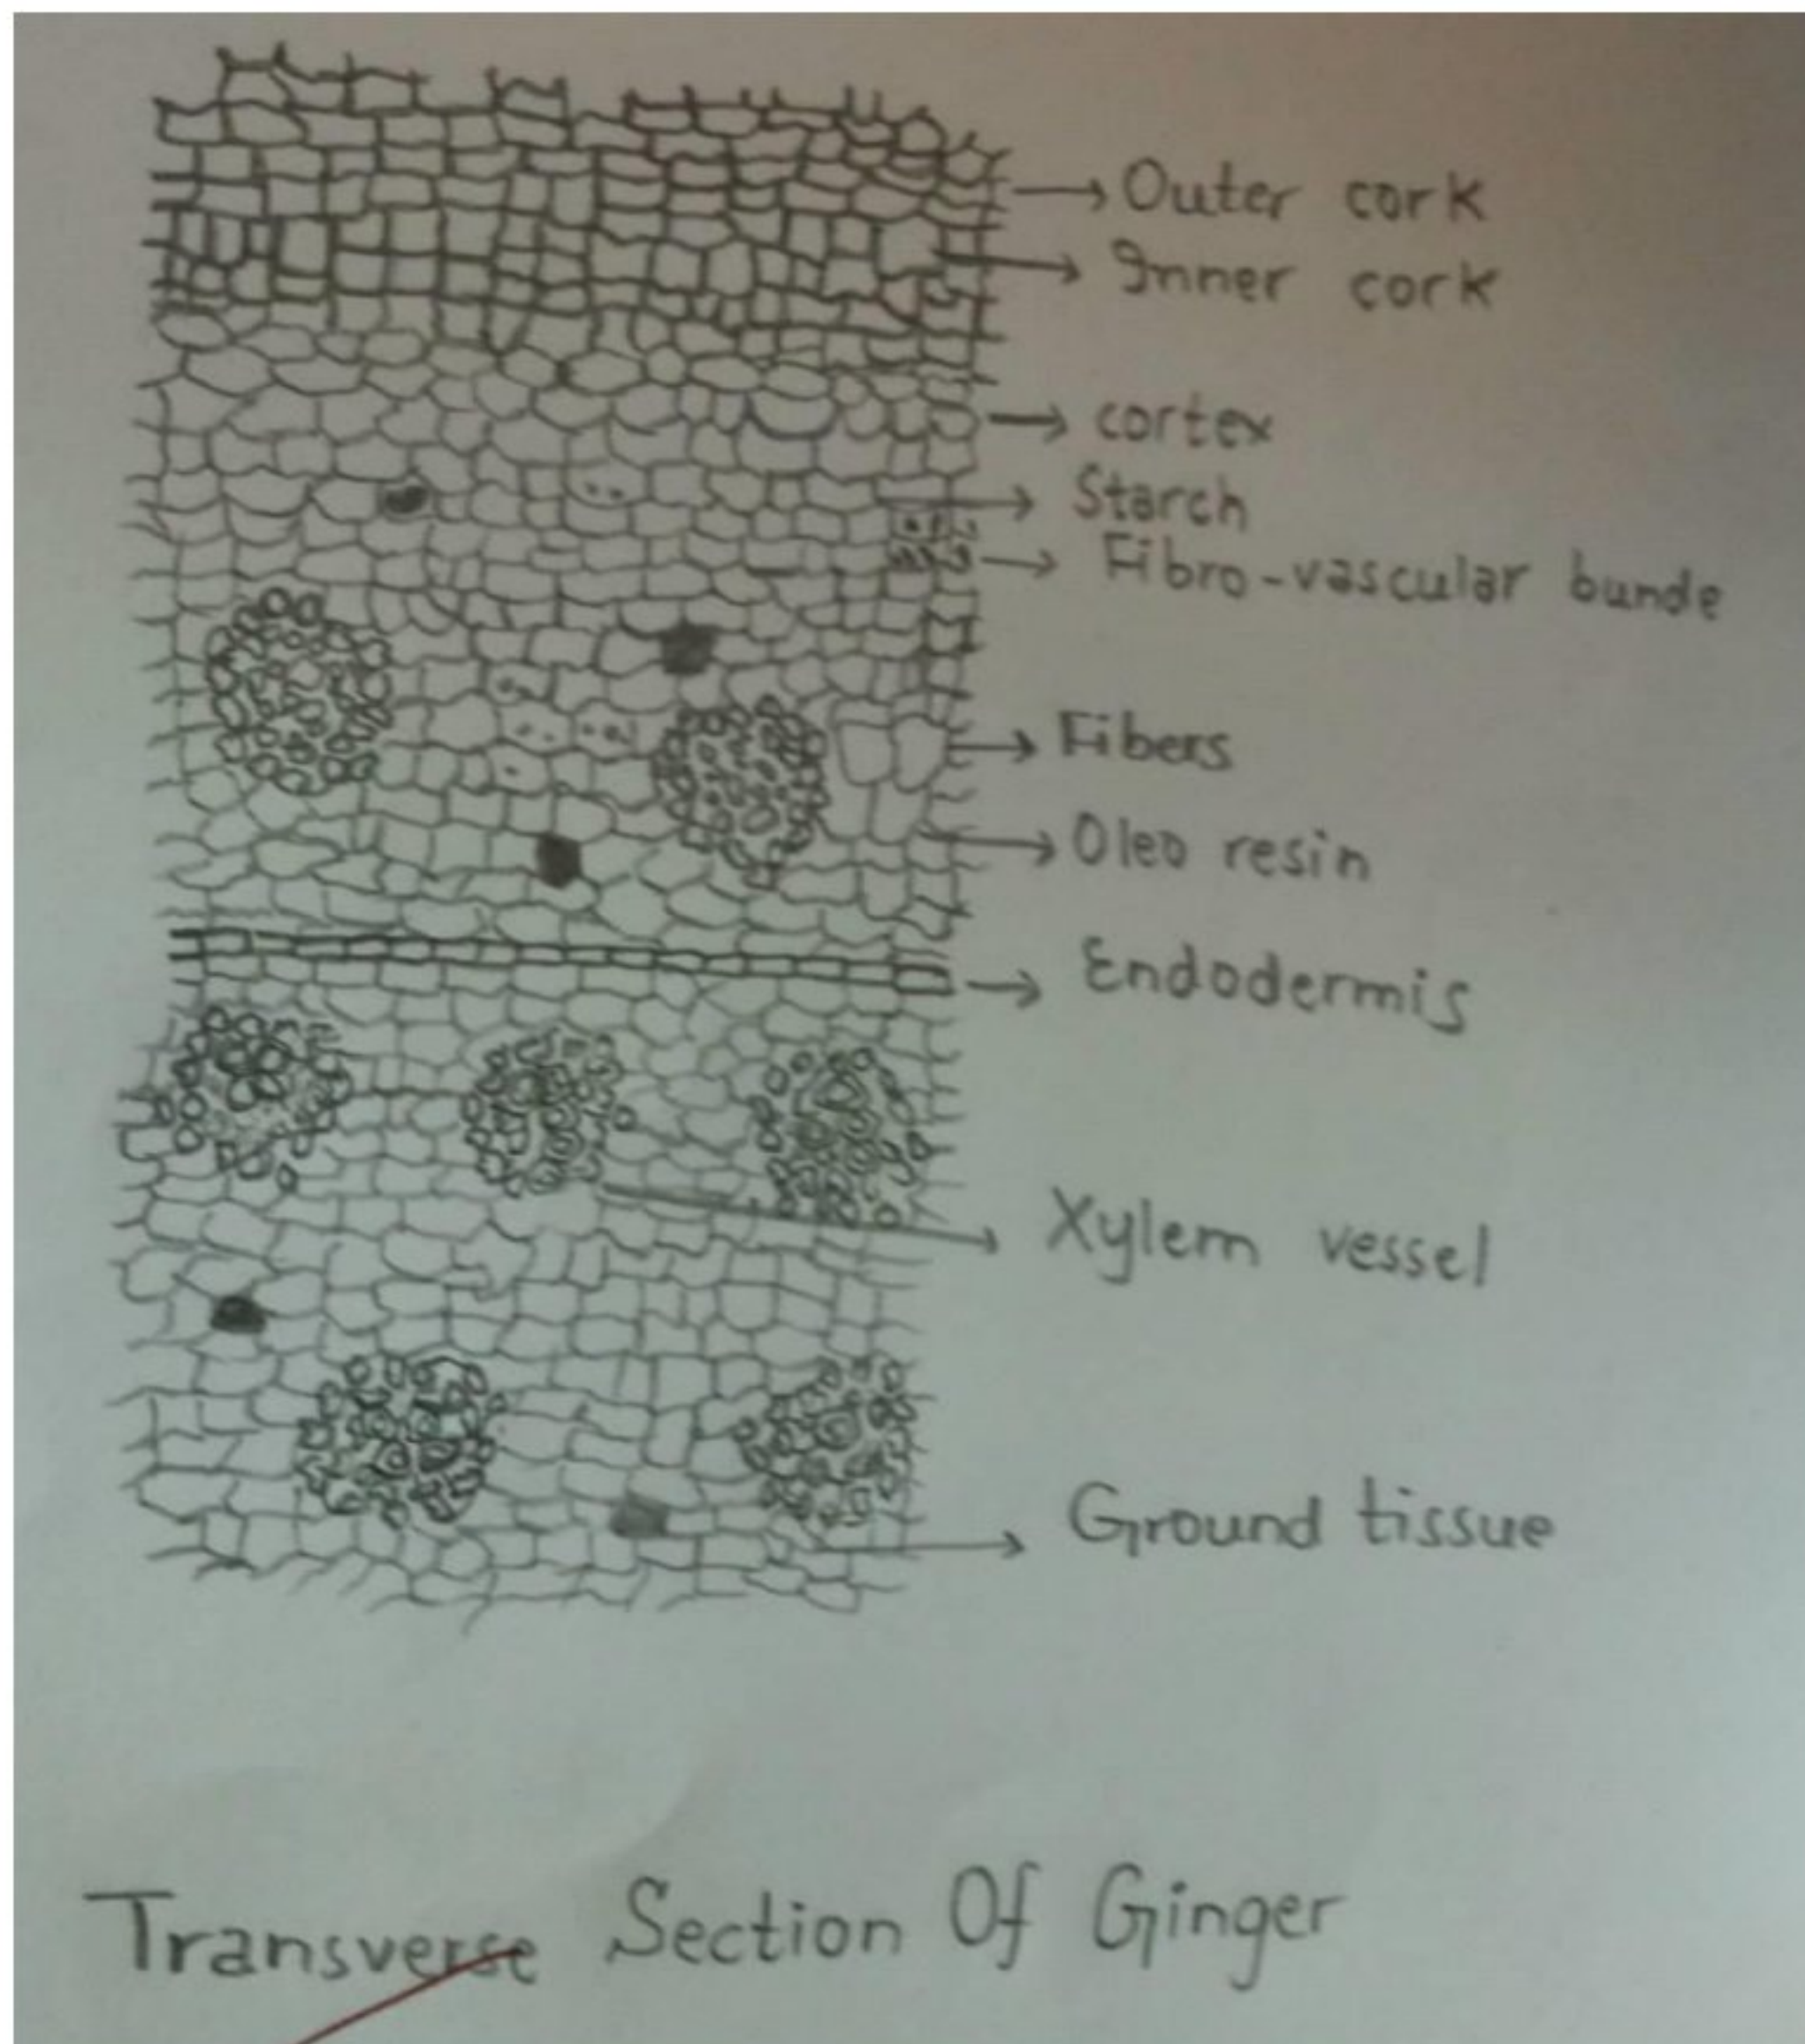 Outer cork
Inner cork
cortex
Starch
Fibro-vascular bunde
Fibers
Oleo resin
Endodermis
Xylem vessel
Ground tissue
Transverse Section Of Ginger